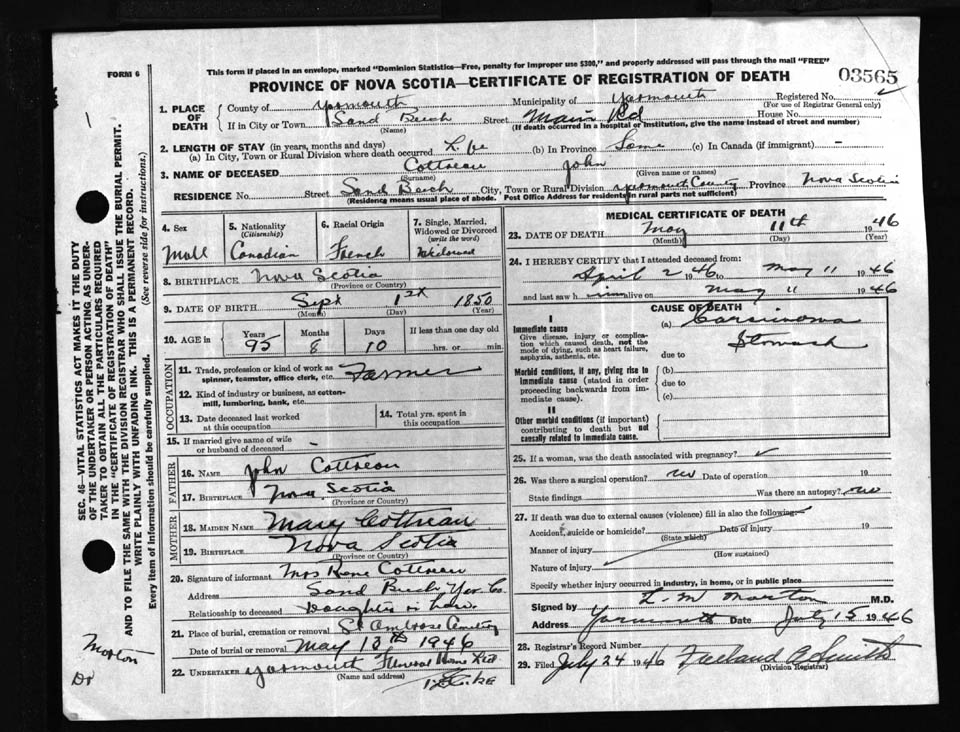 This form if placed in an envelope, marked "Dominion Statistics—Free, penalty for improper use $300," and properly addressed will pass through the mail "FREE"
FORM 6
PROVINCE OF NOVA SCOTIA—CERTIFICATE OF REGISTRATION OF DEATH
03565
1. PLACE OF DEATH
County of Yarmouth Municipality of Yarmouth Registered No.
(For use of Registrar General only)
If in City or Town Sand Beach Street Main Rd House No.
(Name) (If death occurred in a hospital or institution, give the name instead of street and number)
2. LENGTH OF STAY (in years, months and days)
(a) In City, Town or Rural Division where death occurred Life (b) In Province Same (c) In Canada (if immigrant) —
3. NAME OF DECEASED Cottreau John
(Surname) (Given name or names)
RESIDENCE No. Street Sand Beach City, Town or Rural Division Yarmouth County Province Nova Scotia
(Residence means usual place of abode. Post Office Address for residents in rural parts not sufficient)
4. Sex Male
5. Nationality (Citizenship) Canadian
6. Racial Origin French
7. Single, Married, Widowed or Divorced (write the word) Widowed
8. BIRTHPLACE Nova Scotia
(Province or Country)
9. DATE OF BIRTH Sept 1st 1850
(Month) (Day) (Year)
10. AGE in Years 95 Months 8 Days 10 If less than one day old hrs. or min.
OCCUPATION
11. Trade, profession or kind of work as spinner, teamster, office clerk, etc. Farmer
12. Kind of industry or business, as cotton-mill, lumbering, bank, etc.
13. Date deceased last worked at this occupation
14. Total yrs. spent in this occupation
15. If married give name of wife or husband of deceased –
FATHER
16. NAME John Cottreau
17. BIRTHPLACE Nova Scotia
(Province or Country)
MOTHER
18. MAIDEN NAME Mary Cottreau
19. BIRTHPLACE Nova Scotia
(Province or Country)
20. Signature of informant Mrs Rene Cottreau
Address Sand Beach, Yar. Co.
Relationship to deceased Daughter in law.
21. Place of burial, cremation or removal St Ambrose Cemetery
Date of burial or removal May 13th 1946
22. UNDERTAKER Yarmouth Funeral Home Ltd
(Name and address)
MEDICAL CERTIFICATE OF DEATH
23. DATE OF DEATH May 11th 1946
(Month) (Day) (Year)
24. I HEREBY CERTIFY that I attended deceased from:
April 2 1946 to May 11 1946
and last saw him alive on May 11 1946
CAUSE OF DEATH
I
Immediate cause
Give disease, injury or complication which caused death, not the mode of dying, such as heart failure, asphyxia, asthenia, etc.
(a) Carcinoma
Stomach
due to
Morbid conditions, if any, giving rise to immediate cause (stated in order proceeding backwards from immediate cause).
(b)
due to
(c)
II
Other morbid conditions (if important) contributing to death but not causally related to immediate cause.
25. If a woman, was the death associated with pregnancy?
26. Was there a surgical operation? no Date of operation 19
State findings Was there an autopsy? no
27. If death was due to external causes (violence) fill in also the following:
Accident, suicide or homicide? Date of injury 19
(State which)
Manner of injury
(How sustained)
Nature of injury
Specify whether injury occurred in industry, in home, or in public place
Signed by L. M. Morton M.D.
Address Yarmouth Date July 15 1946
28. Registrar's Record Number
29. Filed July 24 1946 B Smith
(Division Registrar)
SEC. 46—VITAL STATISTICS ACT MAKES IT THE DUTY
OF THE UNDERTAKER OR PERSON ACTING AS UNDER-
TAKER TO OBTAIN ALL THE PARTICULARS REQUIRED
IN THE "CERTIFICATE OF REGISTRATION OF DEATH"
AND TO FILE THE SAME WITH THE DIVISION REGISTRAR WHO SHALL ISSUE THE BURIAL PERMIT.
WRITE PLAINLY WITH UNFADING INK. THIS IS A PERMANENT RECORD.
Every item of information should be carefully supplied. (See reverse side for instructions.)
Morton
Dr